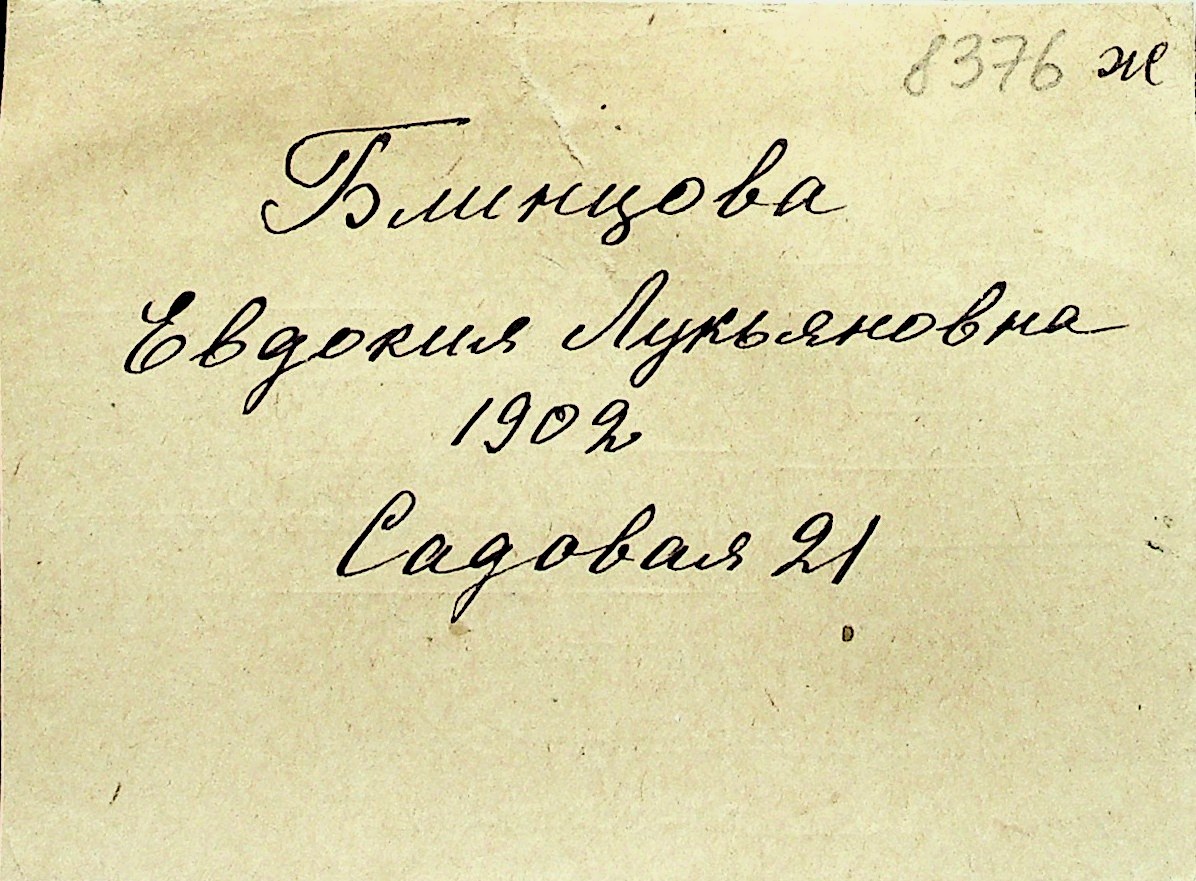 8376 ж
Блинцова
Евдокия Лукьяновна
1902
Садовая 21